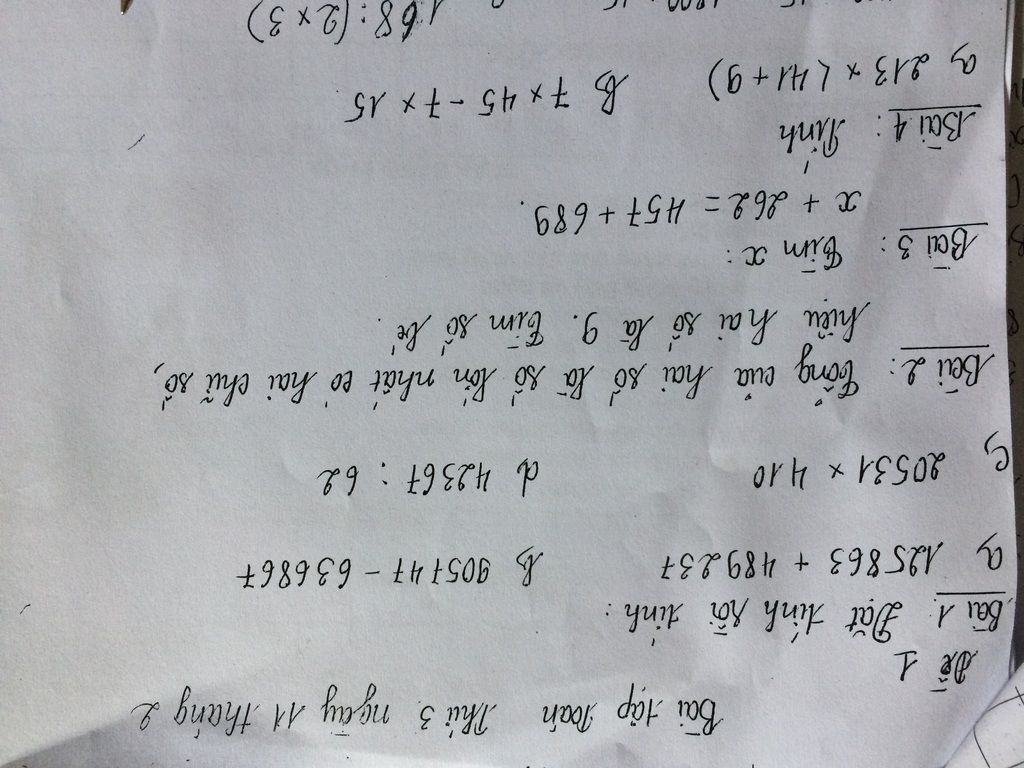 Bài tập Toán Thứ 3 ngày 11 tháng 2
Đề 1
Bài 1. Đặt tính rồi tính :
a, 125863 + 489237 b, 905747 - 636867
c, 20531 x 410 d, 42367 : 62
Bài 2: Tổng của hai số là số lớn nhất có hai chữ số,
hiệu hai số là 9. Tìm số bé.
Bài 3 : Tìm x :
x + 262 = 457 + 689.
Bài 4 : Tính
a, 213 x (41 + 9) b, 7 x 45 - 7 x 15
168 : (2 x 3)